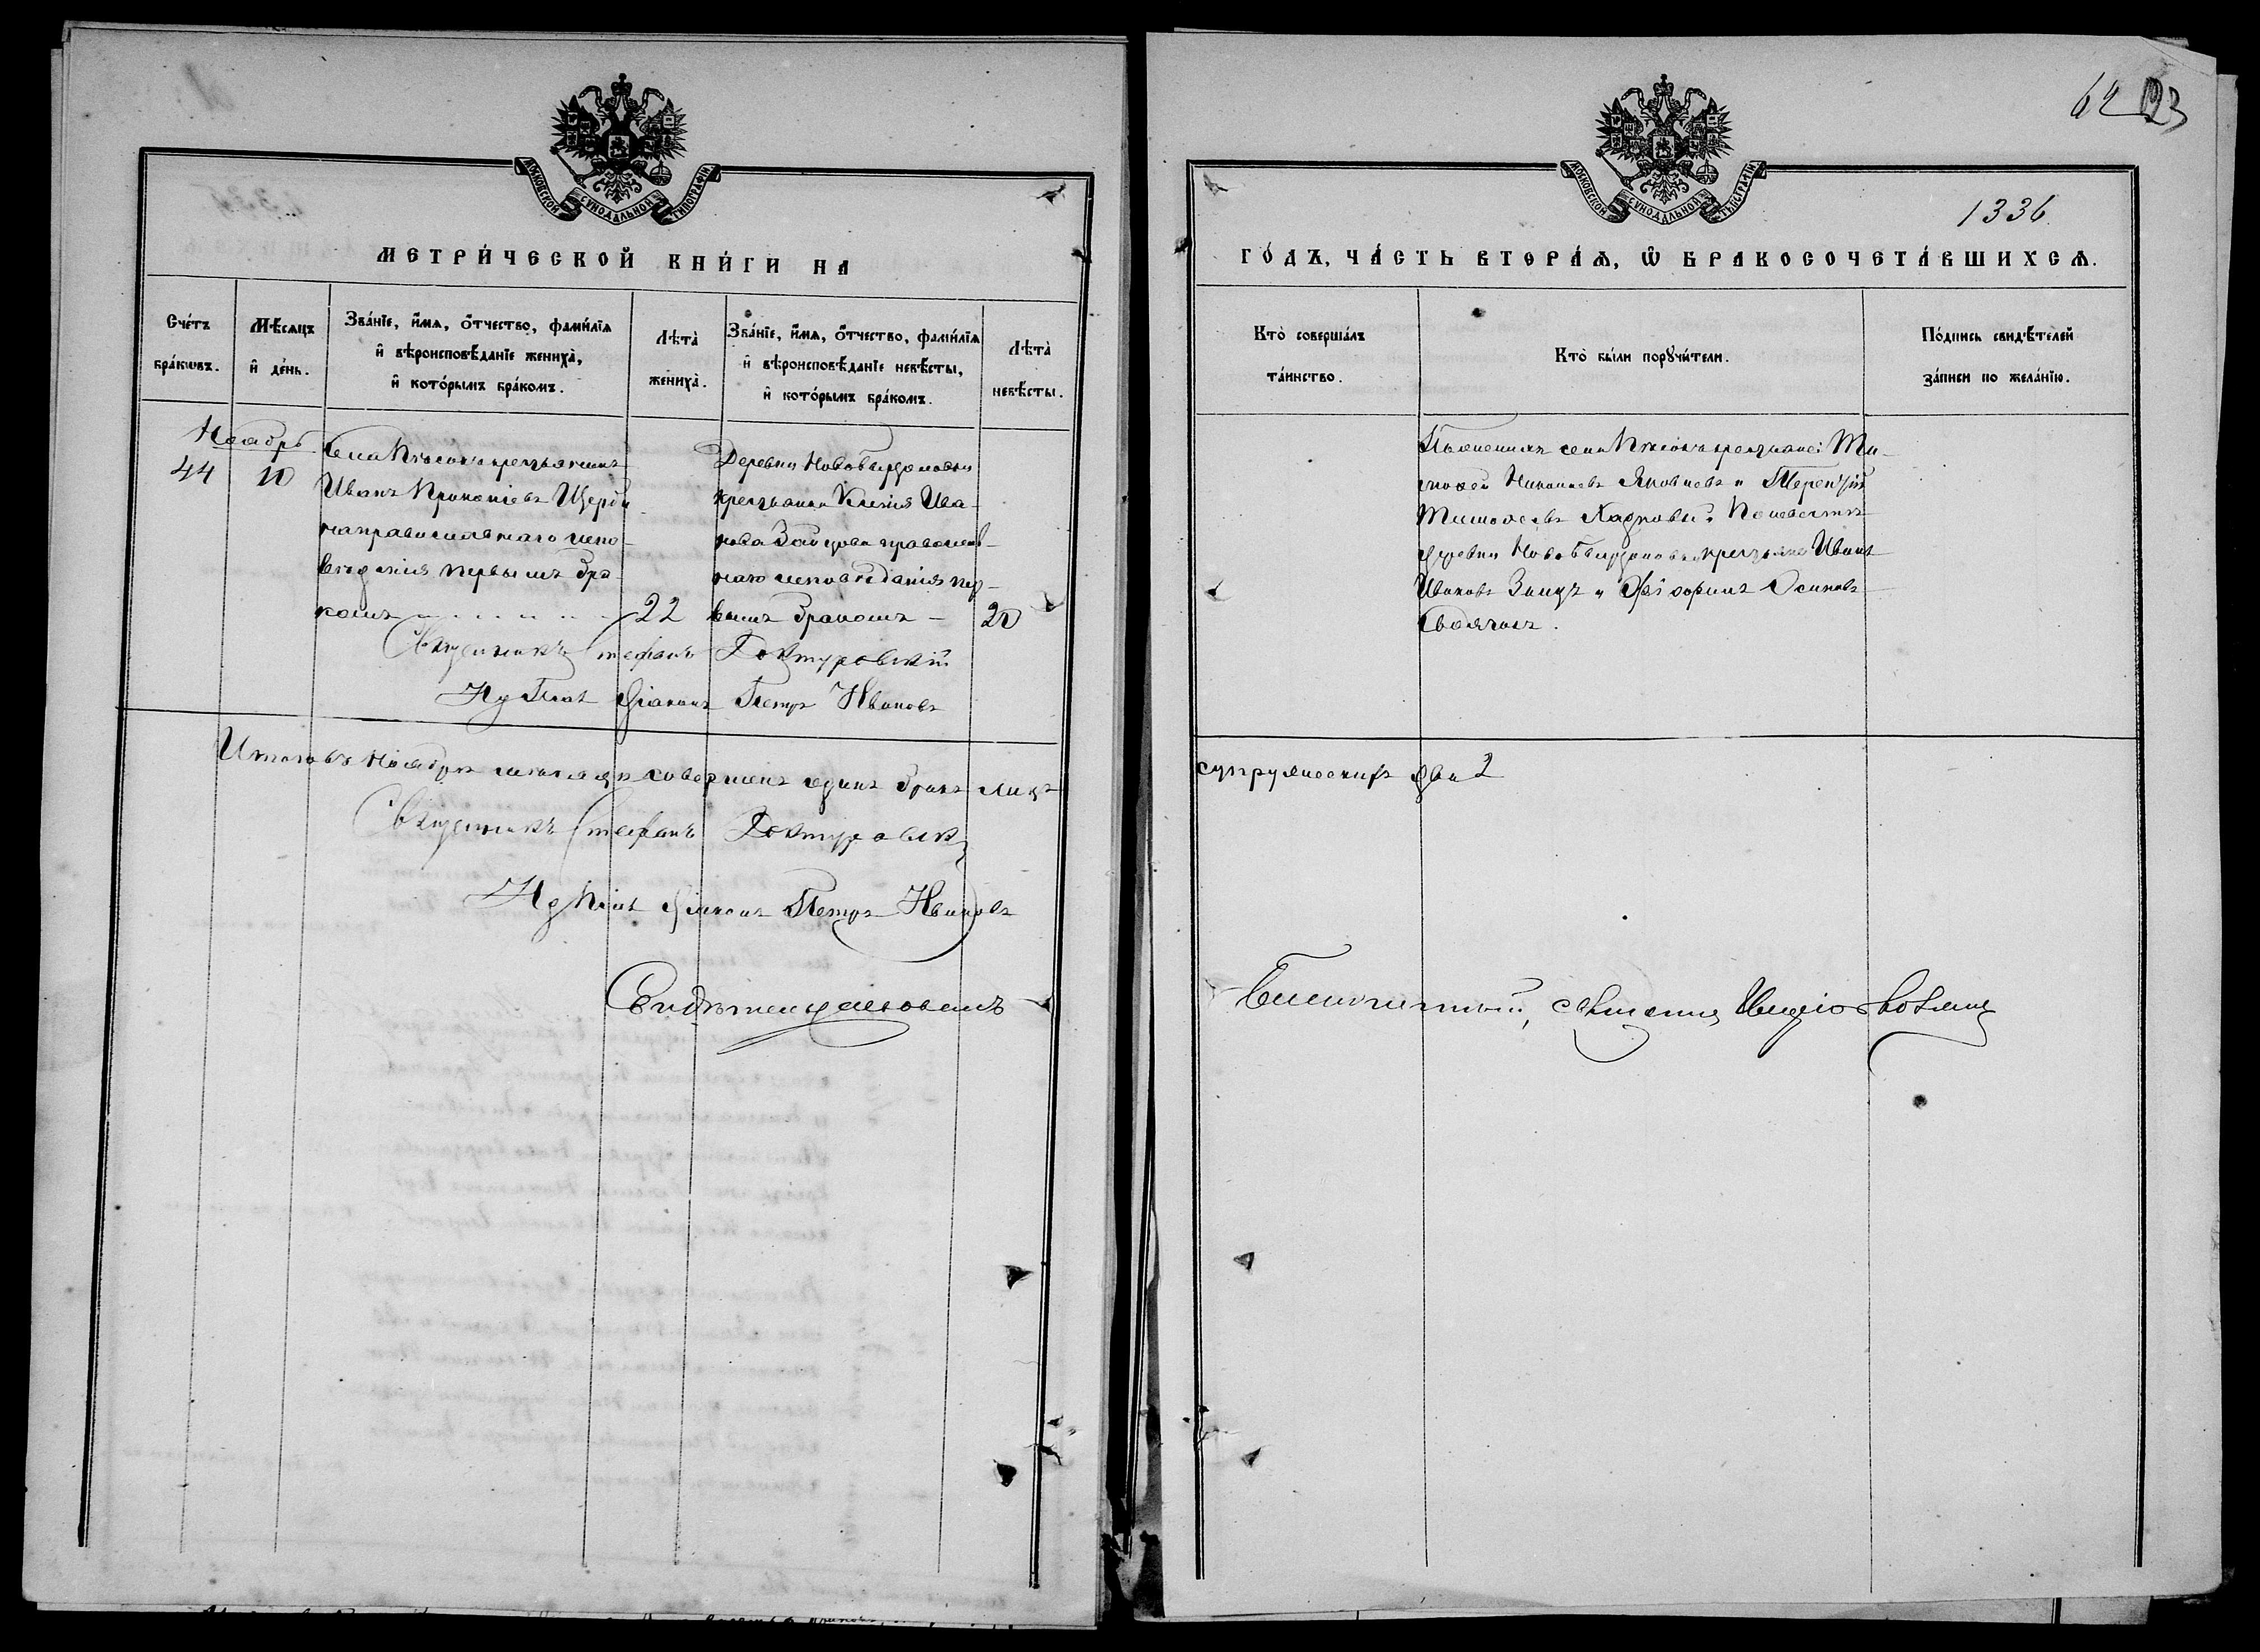 62 23
1336
МОСКОВСКОЙ СѴНОДАЛЬНОЙ ТИПОГРАФІИ
МЕТРИ́ЧЕСКОЙ КНИ́ГИ НА
Сче́тъ бра́кѡвъ.
Мѣ́сѧцъ и҆ де́нь.
Зва́нїе, и҆́мѧ, о҆́тчество, фами́лїѧ
и҆ вѣроисповѣ́данїе жениха̀,
и҆ кото́рымъ бра́комъ.
Лѣта̀ жениха̀.
Зва́нїе, и҆́мѧ, о҆́тчество, фами́лїѧ
и҆ вѣроисповѣ́данїе невѣ́сты,
и҆ кото́рымъ бра́комъ.
Лѣта̀ невѣ́сты.
Ноябрь
44 10
Села крестьянинъ
Иванъ Прокопіевъ Щерби
на православнаго испо-
вѣданія первымъ бра-
комъ 22
Деревни Новобогдановки
крестьянка Ксенія Ива-
нова Зайцева православ-
наго исповѣданія пер-
вымъ бракомъ - 20
Священникъ Стефанъ Доктуровскій
діаконъ Петръ Ивановъ
Итого въ Ноябрѣ мѣсяцѣ совершенъ одинъ бракъ лицъ
Священникъ Стефанъ Доктуровскій
діаконъ Петръ Ивановъ
МОСКОВСКОЙ СѴНОДАЛЬНОЙ ТИПОГРАФІИ
ГО́ДЪ, ЧА́СТЬ ВТОРА́Ѧ, Ѡ҆ БРАКОСОЧЕТА́ВШИХСѦ.
Кто̀ соверша́лъ та́инство.
Кто̀ бы́ли порꙋчи́тели.
По́дпись свидѣ́телей за́писи по жела́нїю.
По женихѣ села крестьяне Ти-
мофей Яковлевъ и Терентій
Тимофеевъ По невѣстѣ
деревни Новобогдановки крестьяне Иванъ
Ивановъ Заяцъ и Осиповъ
супружескихъ два 2